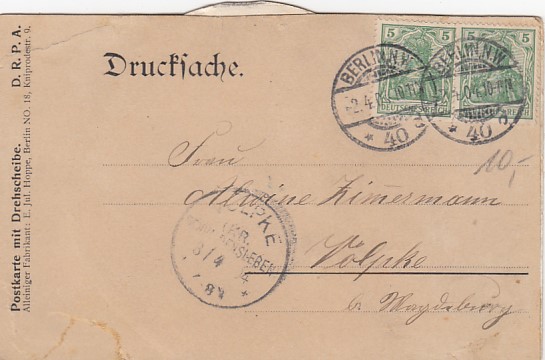 Postkarte mit Drehscheibe. D. R. P. A.
Alleiniger Fabrikant: E. Jul. Hoppe, Berlin NO. 18, Kniprodestr. 9.
Drucksache.
5 5
5
DEUTSCHES REICH
BERLIN N.W.
40
BERLIN N.W.
40
10,-
Frau
Alwine Zimmermann
Völpke
b/ Magdeburg
VÖLPKE
KR.
3/4